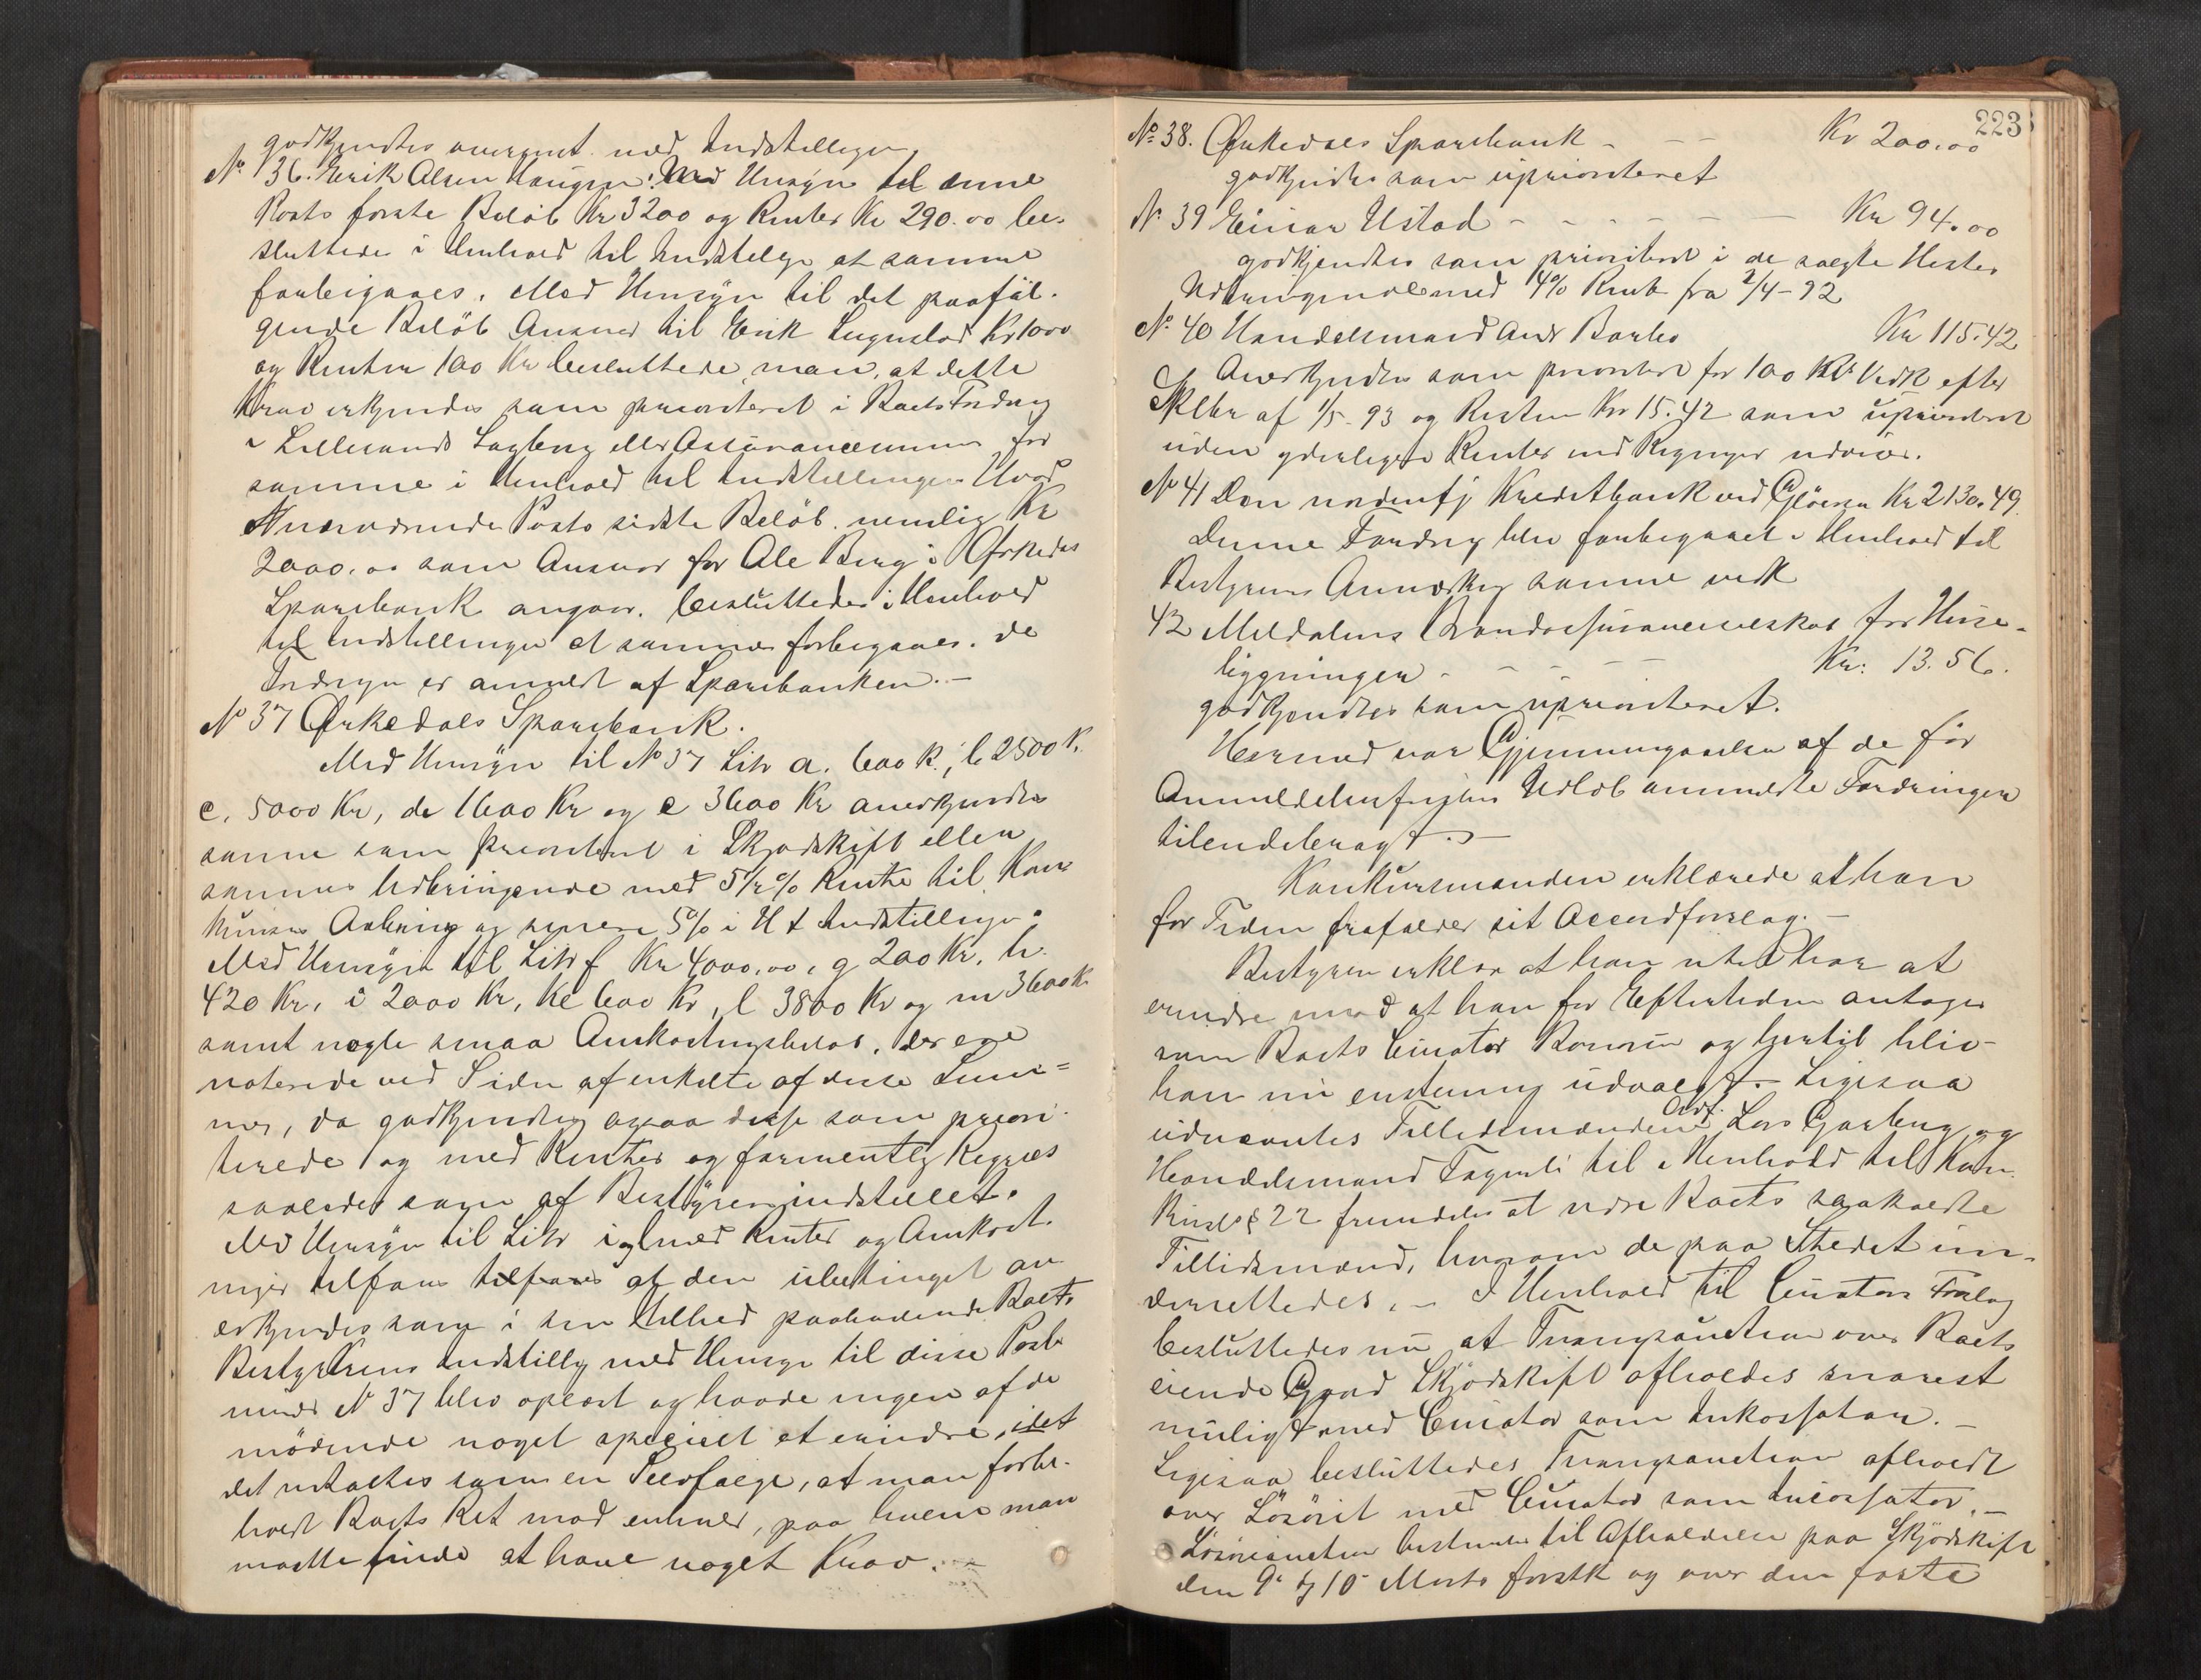 godkjendtes overensst. med Indstillingen.
No 36. Erik Olsen Haugen: Med Hensyn til denne
Posts første Beløb Kr 3200 og Renter Kr 290.00 be-
sluttedes i Henhold til Indstillge at samme
forbigaaes. Med Hensyn til det paaføl-
gende Beløb Ansvar til Erik Kr 1000
og Renter 100 Kr besluttede man, at dette
Krav erkjendes som prioriteret i Boets Fordring
i Lillesands Sagbrug eller Assurancesummen for
samme i Henhold til Indstillingen. Hvad
Nærværende Posts sidste Beløb nemlig Kr
2000.00 som Ansvar for Ole Berg i Ørkedals
Sparebank angaar, besluttedes i Henhold
til Indstillingen at samme forbigaaes. da
Fordringen er anmeldt af Sparebanken.-
No 37 Ørkedals Sparebank.
Med Hensyn til No 37 Litr a. 600 K., b 2500 K.
c. 5000 Kr, d 1600 Kr og e 3600 Kr anerkjendtes
samme som prioriteret i Skjødskift eller
sammes Udbringende med 5½% Rente til Kon-
kursens Aabning og senere 5% i H t Indstillingen.
Med Hensyn til Litr f Kr 4000.00, g 200 Kr, h.
420 Kr, i 2000 Kr, k 600 Kr, l 3800 Kr og m 3600 K
samt nogle smaa Omkostningsbeløb, der ere
noterede ved Siden af enkelte af disse Sum=
mer, da godkjendtes ogsaa disse som priori-
terede og med Renter og formentlig Regres
saaledes som af Bestyreren indstillet.
Med Hensyn til Litr i og l med Renter og Omkost-
ninger tilføies tilføies at den ubetinget an-
erkjendes som i sin Helhed paahvilende Boets
Bestyrerens Indstillg med Hensyn til disse Poster
under N 37 blev oplæst og havde ingen af de
mødende noget specielt at erindre, idet
det udtaltes som en Selvfølge, at man forbe-
holdt Boets Ret mod enhver, paa hvem man
maatte finde at have noget Krav.-
223
No 38. Ørkedals Sparebank - - - Kr 200.00
godkjendtes som uprioriteret
No 39 Einar Ustad - - - - - - Kr 94.00
godkjendtes som prioriteret i de solgte Hestes
Udbringende med 4% Rente fra 2/4-92
No 40 Handelsmand And Borbo Kr 115.42
Anerkjendtes som prioriteret for 100 Kr Vedk efter
Skbr af 1/5-93 og Resten Kr 15.42 som uprioriteret
uden yderligere Renter end Regningen udviser.
No 41 Den nordenfj Kreditbank ved Gløersen Kr 2130.49.
Denne Fordrng blev forbigaaet i Henhold til
Bestyrerens Anmærkng samme vedk
42 Meldalens Brandassuranceselskab for Huse-
liggningen - - - - - Kr: 13.56.
godkjendtes som uprioriteret.
Hermed var Gjennemgaaelsen af de før
Anmeldelsesfristens Udløb anmeldte Fordringer
tilendebragt.-
Konkursmanden erklærede at han
for Tiden frafalder sit Accordforslag.-
Bestyreren erklær at han intet har at
erindre mod at han for Eftertiden antages
som Boets Curator Bonorum og hertil blev
han nu enstemmig udvalgt.- Ligesaa
udnævntes Tillidsmændene Ordf. Lars Garberg og
Handelsmand Fagerli til i Henhold til Kon-
kursl § 22 fremdeles at være Boets saakaldte
Tillidsmænd, hvorom de paa Stedet un-
derrettedes.- I Henhold til Curators Forslag
besluttedes nu at Tvangsauction over Boets
eiende Gaard Skjødskift afholdes snarest
muligt med Curator som Inkassator.-
Ligesaa besluttedes Tvangsauction afholdt
over Løsøret med Curator som Incassator.-
Løsøreauction bestemtes til Afholdelse paa Skjødskift
den 9de og 10de Marts førstk og over den faste